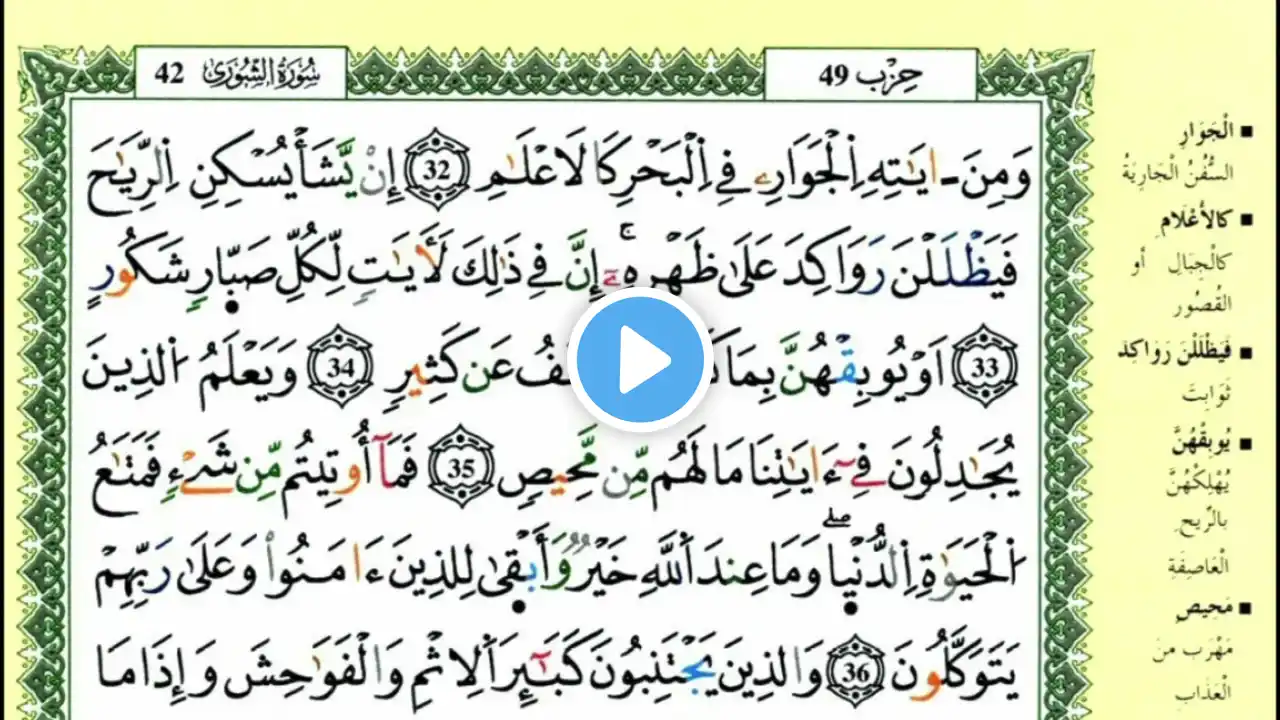 حِزْب 49
سُورَةُ الشُّورَىٰ 42
وَمِنَ ـ اٰيَٰتِهِ اِ۬لْجَوَارِۦ فِے اِ۬لْبَحْرِ كَالَاعْلَٰمِ 32 إِنْ يَّشَأْ يُسْكِنِ اِ۬لرِّيَٰحَ
فَيَظْلَلْنَ رَوَاكِدَ عَلَىٰ ظَهْرِهِۦٓۚ إِنَّ فِے ذَٰلِكَ لَأٓيَٰتٖ لِّكُلِّ صَبّ۪ارٖ شَكُورٍ
33 اَوْ يُوبِقْهُنَّ بِمَا عَن كَثِيرٖ 34 وَيَعْلَمُ اَ۬لذِينَ
يُجَٰدِلُونَ فِےٓ ءَايَٰتِنَا مَا لَهُم مِّن مَّحِيصٖ 35 فَمَآ أُوتِيتُم مِّن شَےْءٖ فَمَتَٰعُ
اُ۬لْحَيَوٰةِ اِ۬لدُّنْي۪اۖ وَمَا عِندَ اَ۬للَّهِ خَيْرٞ وَأَبْق۪ىٰ لِلذِينَ ءَامَنُواْ وَعَلَىٰ رَبِّهِمْ
يَتَوَكَّلُونَ 36 وَالذِينَ يَجْتَنِبُونَ كَبَٰٓئِرَ اَ۬لِاثْمِ وَالْفَوَٰحِشَ وَإِذَا مَا
▪ الْجَوَارِ
السُّفُنُ الْجَارِيَةُ
▪ كَالْأَعْلَامِ
كَالْجِبَالِ أو
القُصُور
▪ فَيَظْلَلْنَ رَوَاكِدَ
ثَوَابِتَ
▪ يُوبِقْهُنَّ
يُهْلِكْهُنَّ
بالرِّيحِ
الْعَاصِفَةِ
▪ مَحِيصٍ
مَهْرَبٍ مِنَ
الْعَذَابِ